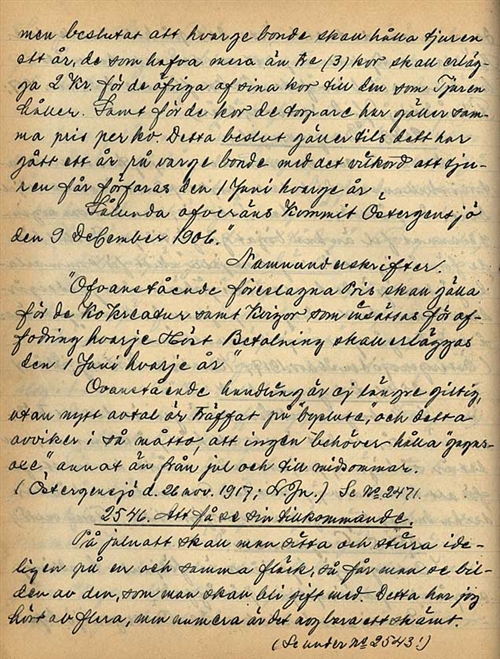 men beslutat att hvarje bonde skall hålla tjuren
ett år, de som hafva mera än tre (3) kor skall erläg-
ga 2 Kr. för de öfriga af sina kor till den som Tjuren
håller. Samt för de kor de torpare har gäller sam-
ma pris per ko. Detta beslut gäller tils dett har
gått ett år på varge bonde med det vilkord att tju-
ren får förfaras den 1 Juni hvarge år
Sålunda afveräns kommit Östergensjö
den 9 December 1906."
Namnunderskrifter.
"Ofvanstående föreslagna Pris skall gälla
för de Kokreatur samt Kvigor som insättas för af-
födning hvarje Höst Betalning skall erläggas
den 1 Juni hvarje år"
Ovanstående handling är ej längre giltig,
utan nytt avtal är träffat på byslute", och detta
avviker i så måtto, att ingen behöver hålla "gagns-
oxe" annat än från jul och till midsommar.
(Östergensjö d. 26 nov. 1917; N. Jn.) Se Nº 2471.
2546. Att få se sin tillkommande.
På julnatt skall man sitta och stirra ide-
ligen på en och samma fläck, så får man se bil-
den av den, som man skall bli gift med. Detta har jag
hört av flera, men numera är det nog bara ett skämt.
(Se under Nº 2543!)